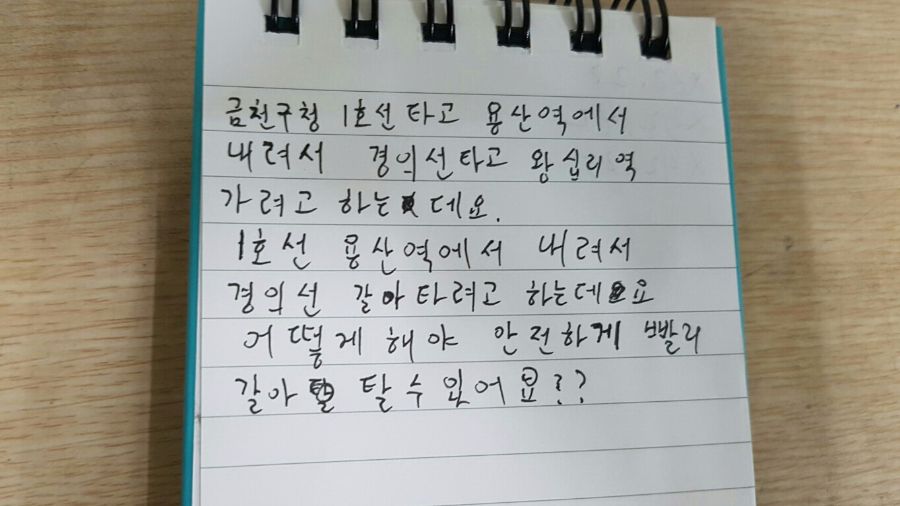 금천구청 1호선타고 용산역에서
내려서 경의선타고 왕십리역
가려고 하는데요.
1호선 용산역에서 내려서
경의선 갈아타려고 하는데요
어떻게해야 안전하게 빨리
갈아 탈수있어요??